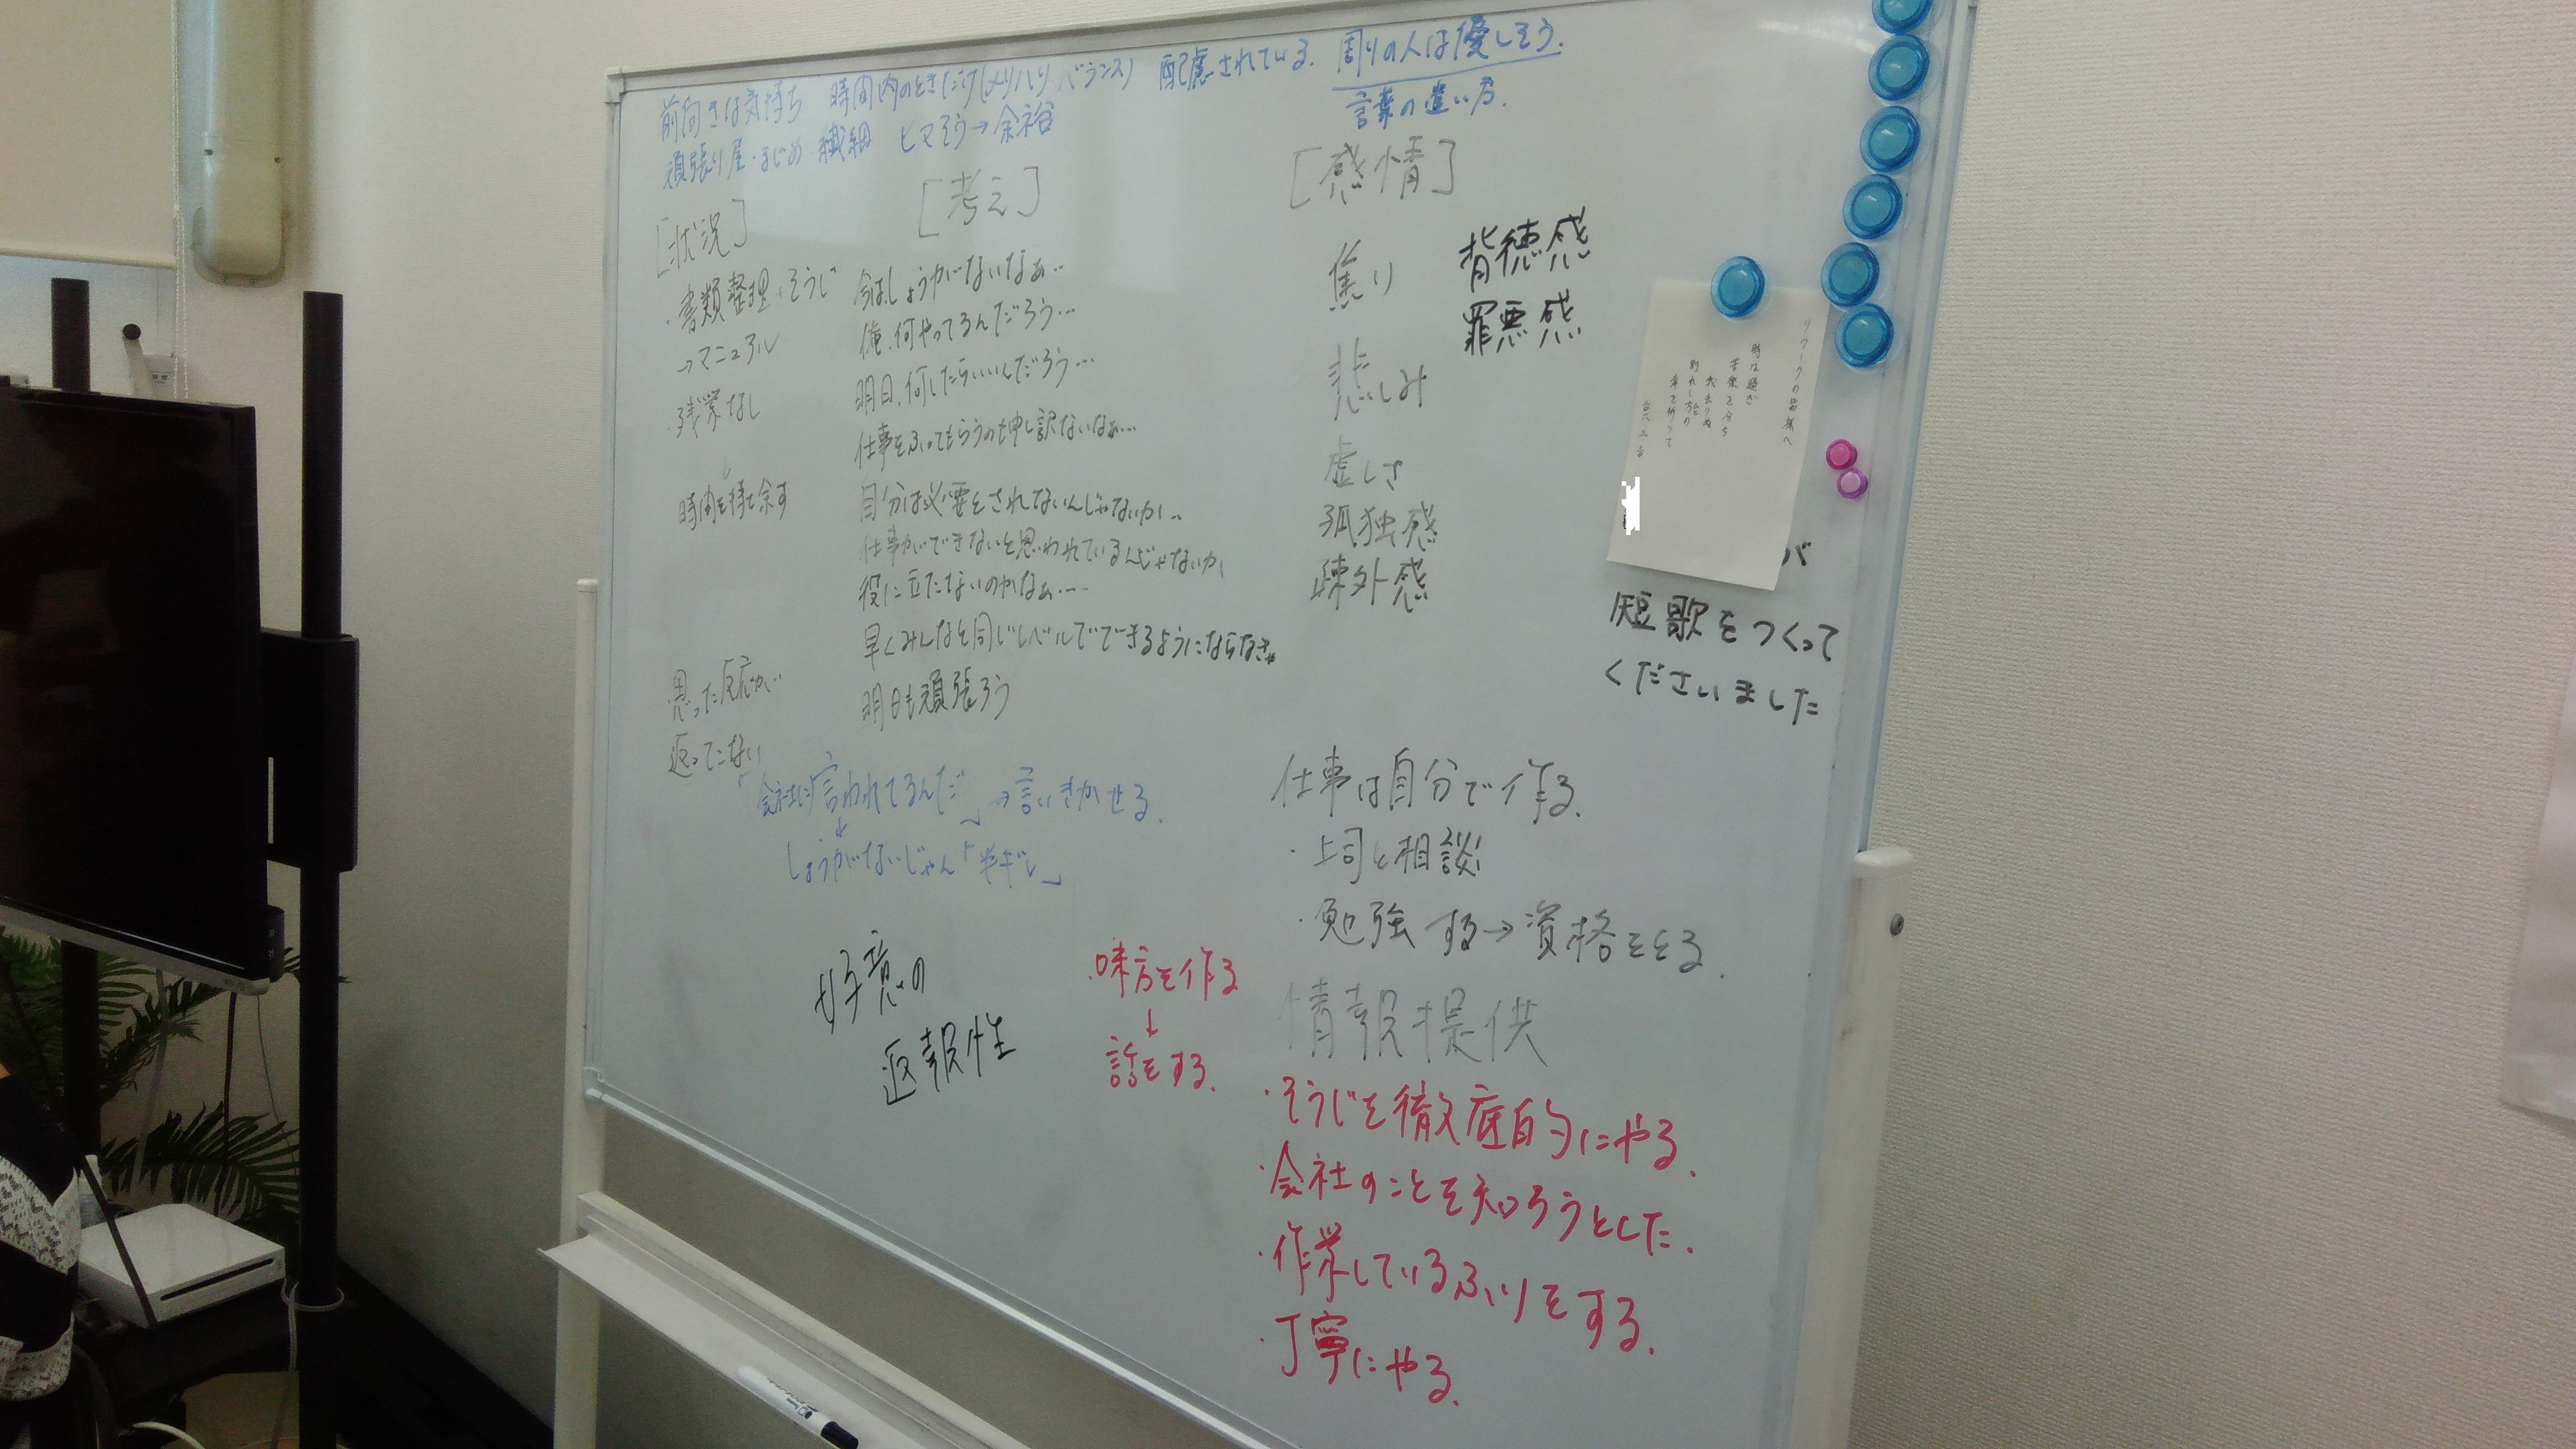 前向きな気持ち 時間内のときだけ(メリハリ バランス) 配慮されている. 周りの人は優しそう.
言葉の遣い方.
頑張り屋・まじめ 繊細 ヒマそう→余裕
[状況]
・書類整理・そうじ
→マニュアル
・残業なし
時間を持て余す
思った反応が
返ってこない
[考え]
今はしょうがないなぁ…
俺、何やってるんだろう…
明日、何したらいいんだろう…
仕事をふってもらうのも申し訳ないなぁ…
自分は必要とされてないんじゃないか…
仕事ができないと思われているんじゃないか
役に立たないのかなぁ…
早くみんなと同じレベルでできるようにならなきゃ
明日も頑張ろう
[感情]
焦り
悲しみ
虚しさ
孤独感
疎外感
背徳感
罪悪感
リワークの皆様へ
時は過ぎ
苦楽を分ち
別れし方の
幸を祈りて
が
短歌をつくって
くださいました
「会社に言われてるんだ」→言いきかせる.
↓
しょうがないじゃん「半ギレ」
好意の
返報性
・味方を作る
↓
話をする.
仕事は自分で作る.
・上司と相談
・勉強する→資格をとる.
情報提供
・そうじを徹底的にやる.
・会社のことを知ろうとした.
・作業しているふりをする.
・丁寧にやる.